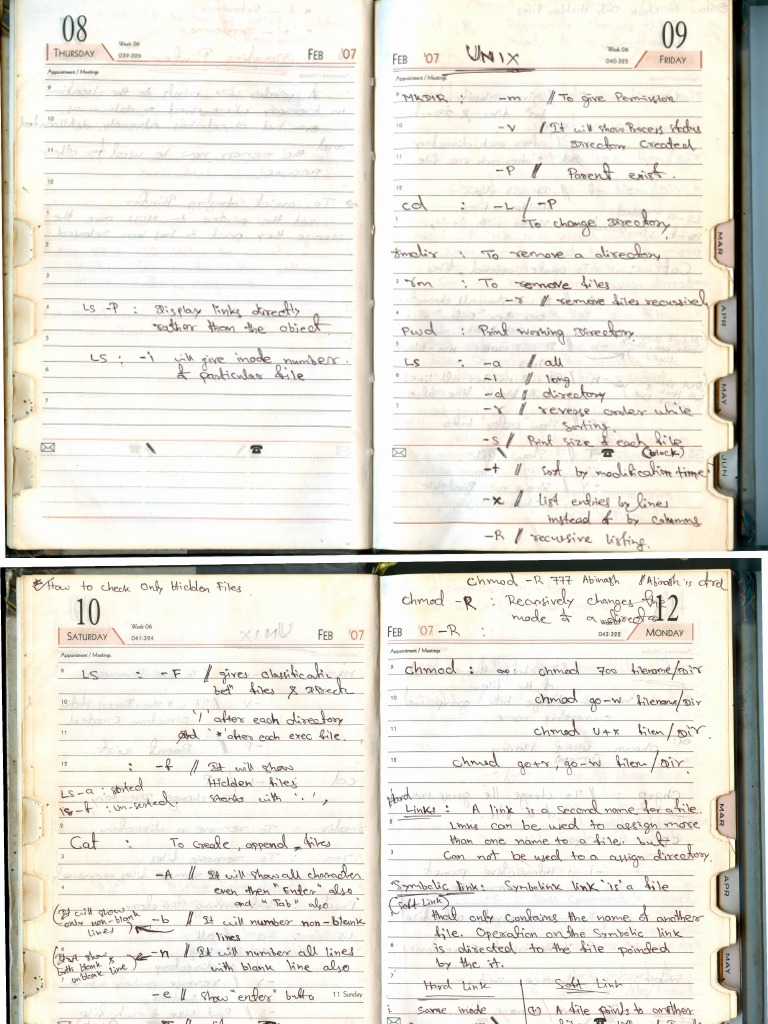 08
THURSDAY
Week 06
039-326
FEB '07
Appointment / Meetings
9
10
11
12
1
2
3
4
LS -P : Display links directly
rather than the object.
5
LS : -i will give inode number
6
of particular file
7
09
FRIDAY
Week 06
040-325
FEB '07
UNIX
Appointment / Meetings
9
MKDIR : -m // To give Permission
10
-v // It will show Process status
Directory created
11
-P // Parent exist.
12
cd : -L / -P
1
To change Directory.
2
rmdir : To remove a directory
3
rm : To remove files
-r // remove files recursively
4
Pwd : Print working Directory.
5
LS : -a // all
6
-l // long
-d // directory
7
-r // reverse order while
sorting.
-S // Print size of each file
(block)
-t // sort by modification time
-x // list entries by lines
instead of by columns
-R // recursive listing.
MAR
APR
MAY
JUN
How to check Only Hidden Files
10
SATURDAY
Week 06
041-324
FEB '07
Appointment / Meetings
9
LS : -F // gives classification
bet" files & Direct
10
'/' after each directory
11
and '*' after each exec file.
12
: -f // It will show
Hidden files
LS -a : sorted
starts with '.',
LS -f : un-sorted.
2
Cat : To create, append, files
3
-A // It will show all character
4
even then "Enter" also
and "Tab" also
(It will show
only non-blank
lines)
-b // It will number non-blank
lines
(It will show
both blank &
unblank line)
-n // It will number all lines
with blank line also
-e // show "enter" button
11 Sunday
chmod -R 777 Abinash // Abinash is a dir
chmod -R : Recursively changes the
mode of a direct
12
MONDAY
043-322
FEB '07
-R :
Appointment / Meetings
9
chmod : chmod 700 filename/Dir
10
chmod go-w filename/Dir
11
chmod u+x filen/Dir.
12
chmod go+r, go-w filen/Dir.
Hard
Links : A link is a second name for a file.
2
Links can be used to assign more
than one name to a file, but
3
Can not be used to a assign directory.
4
Symbolic link : Symbolink link 'is' a file
(Soft Link)
that only contains the name of another
file. Operation on the Symbolic link
6
is directed to the file pointed
by the it.
7
Hard Link
Soft Link
i. Same inode
(i) A file points to another
MAR
APR
MAY